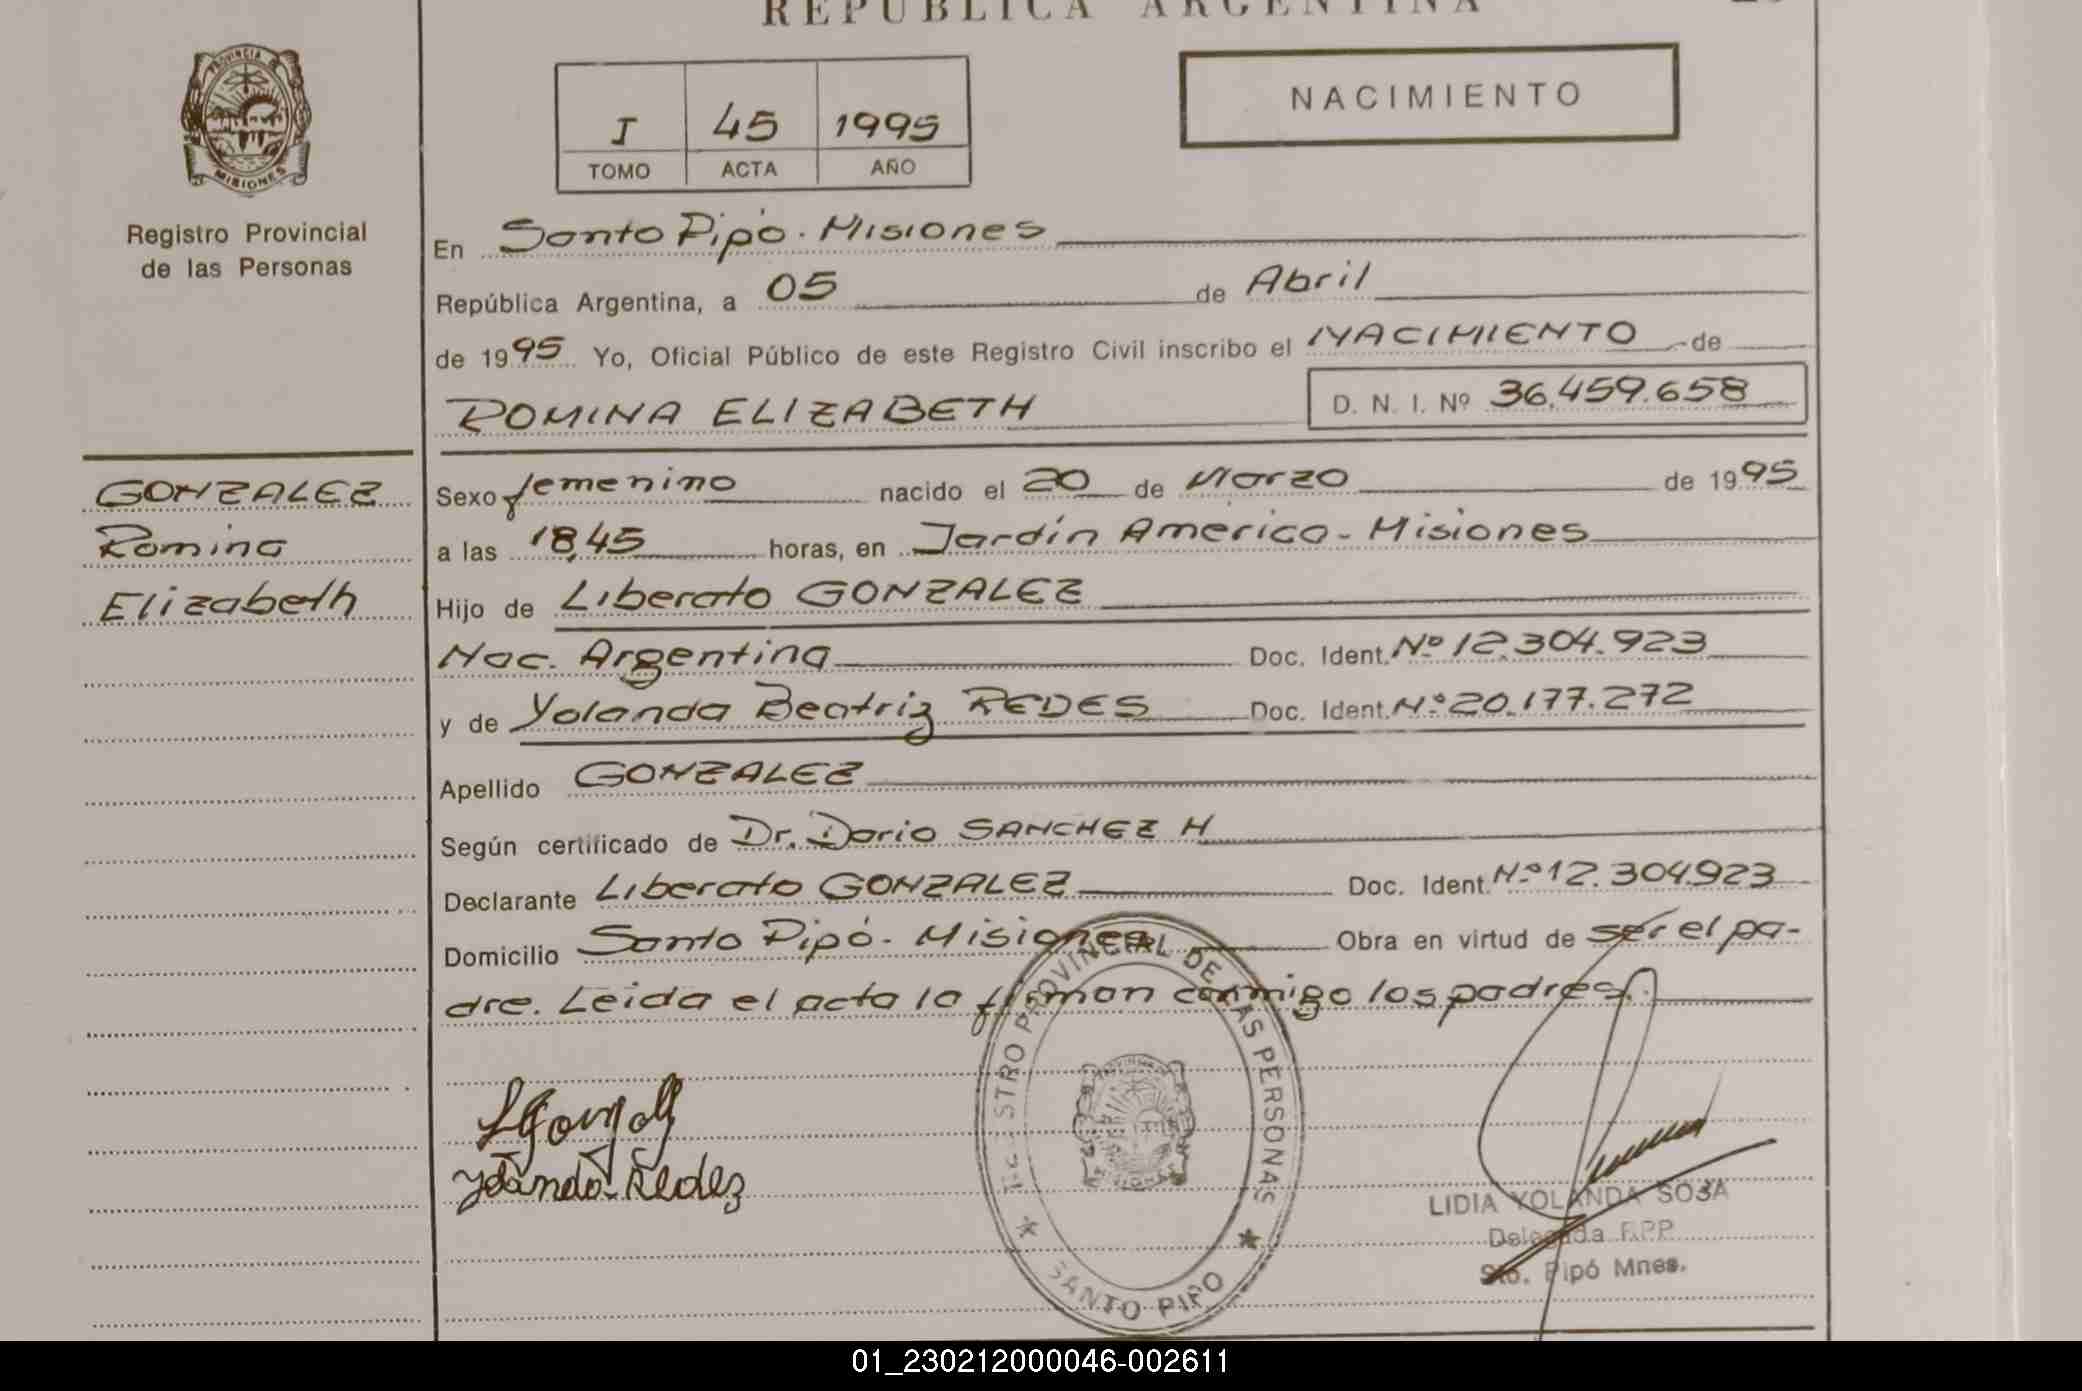 REPUBLICA ARGENTINA
PROVINCIA DE
MISIONES
Registro Provincial
de las Personas
I 45 1995
TOMO ACTA AÑO
NACIMIENTO
En Santo Pipó. Misiones
República Argentina, a 05 de Abril
de 1995 Yo, Oficial Público de este Registro Civil inscribo el NACIMIENTO de
ROMINA ELIZABETH D. N. I. Nº 36.459.658
GONZALEZ
Romina
Elizabeth
Sexo femenino nacido el 20 de Marzo de 1995
a las 18,45 horas, en Jardín América - Misiones
Hijo de Liberato GONZALEZ
Nac. Argentina Doc. Ident. Nº 12.304.923
y de Yolanda Beatriz REDES Doc. Ident. Nº 20.177.272
Apellido GONZALEZ
Según certificado de Dr. Dario SANCHEZ H
Declarante Liberato GONZALEZ Doc. Ident. Nº 12.304923
Domicilio Santo Pipó - Misiones Obra en virtud de ser el pa-
dre. Leida el acta la firman conmigo los padres.
REGISTRO PROVINCIAL DE LAS PERSONAS
SANTO PIPO
Yolanda Redez
LIDIA YOLANDA SOSA
Delegada R.P.P.
Sto. Pipó Mnes.
01_230212000046-002611